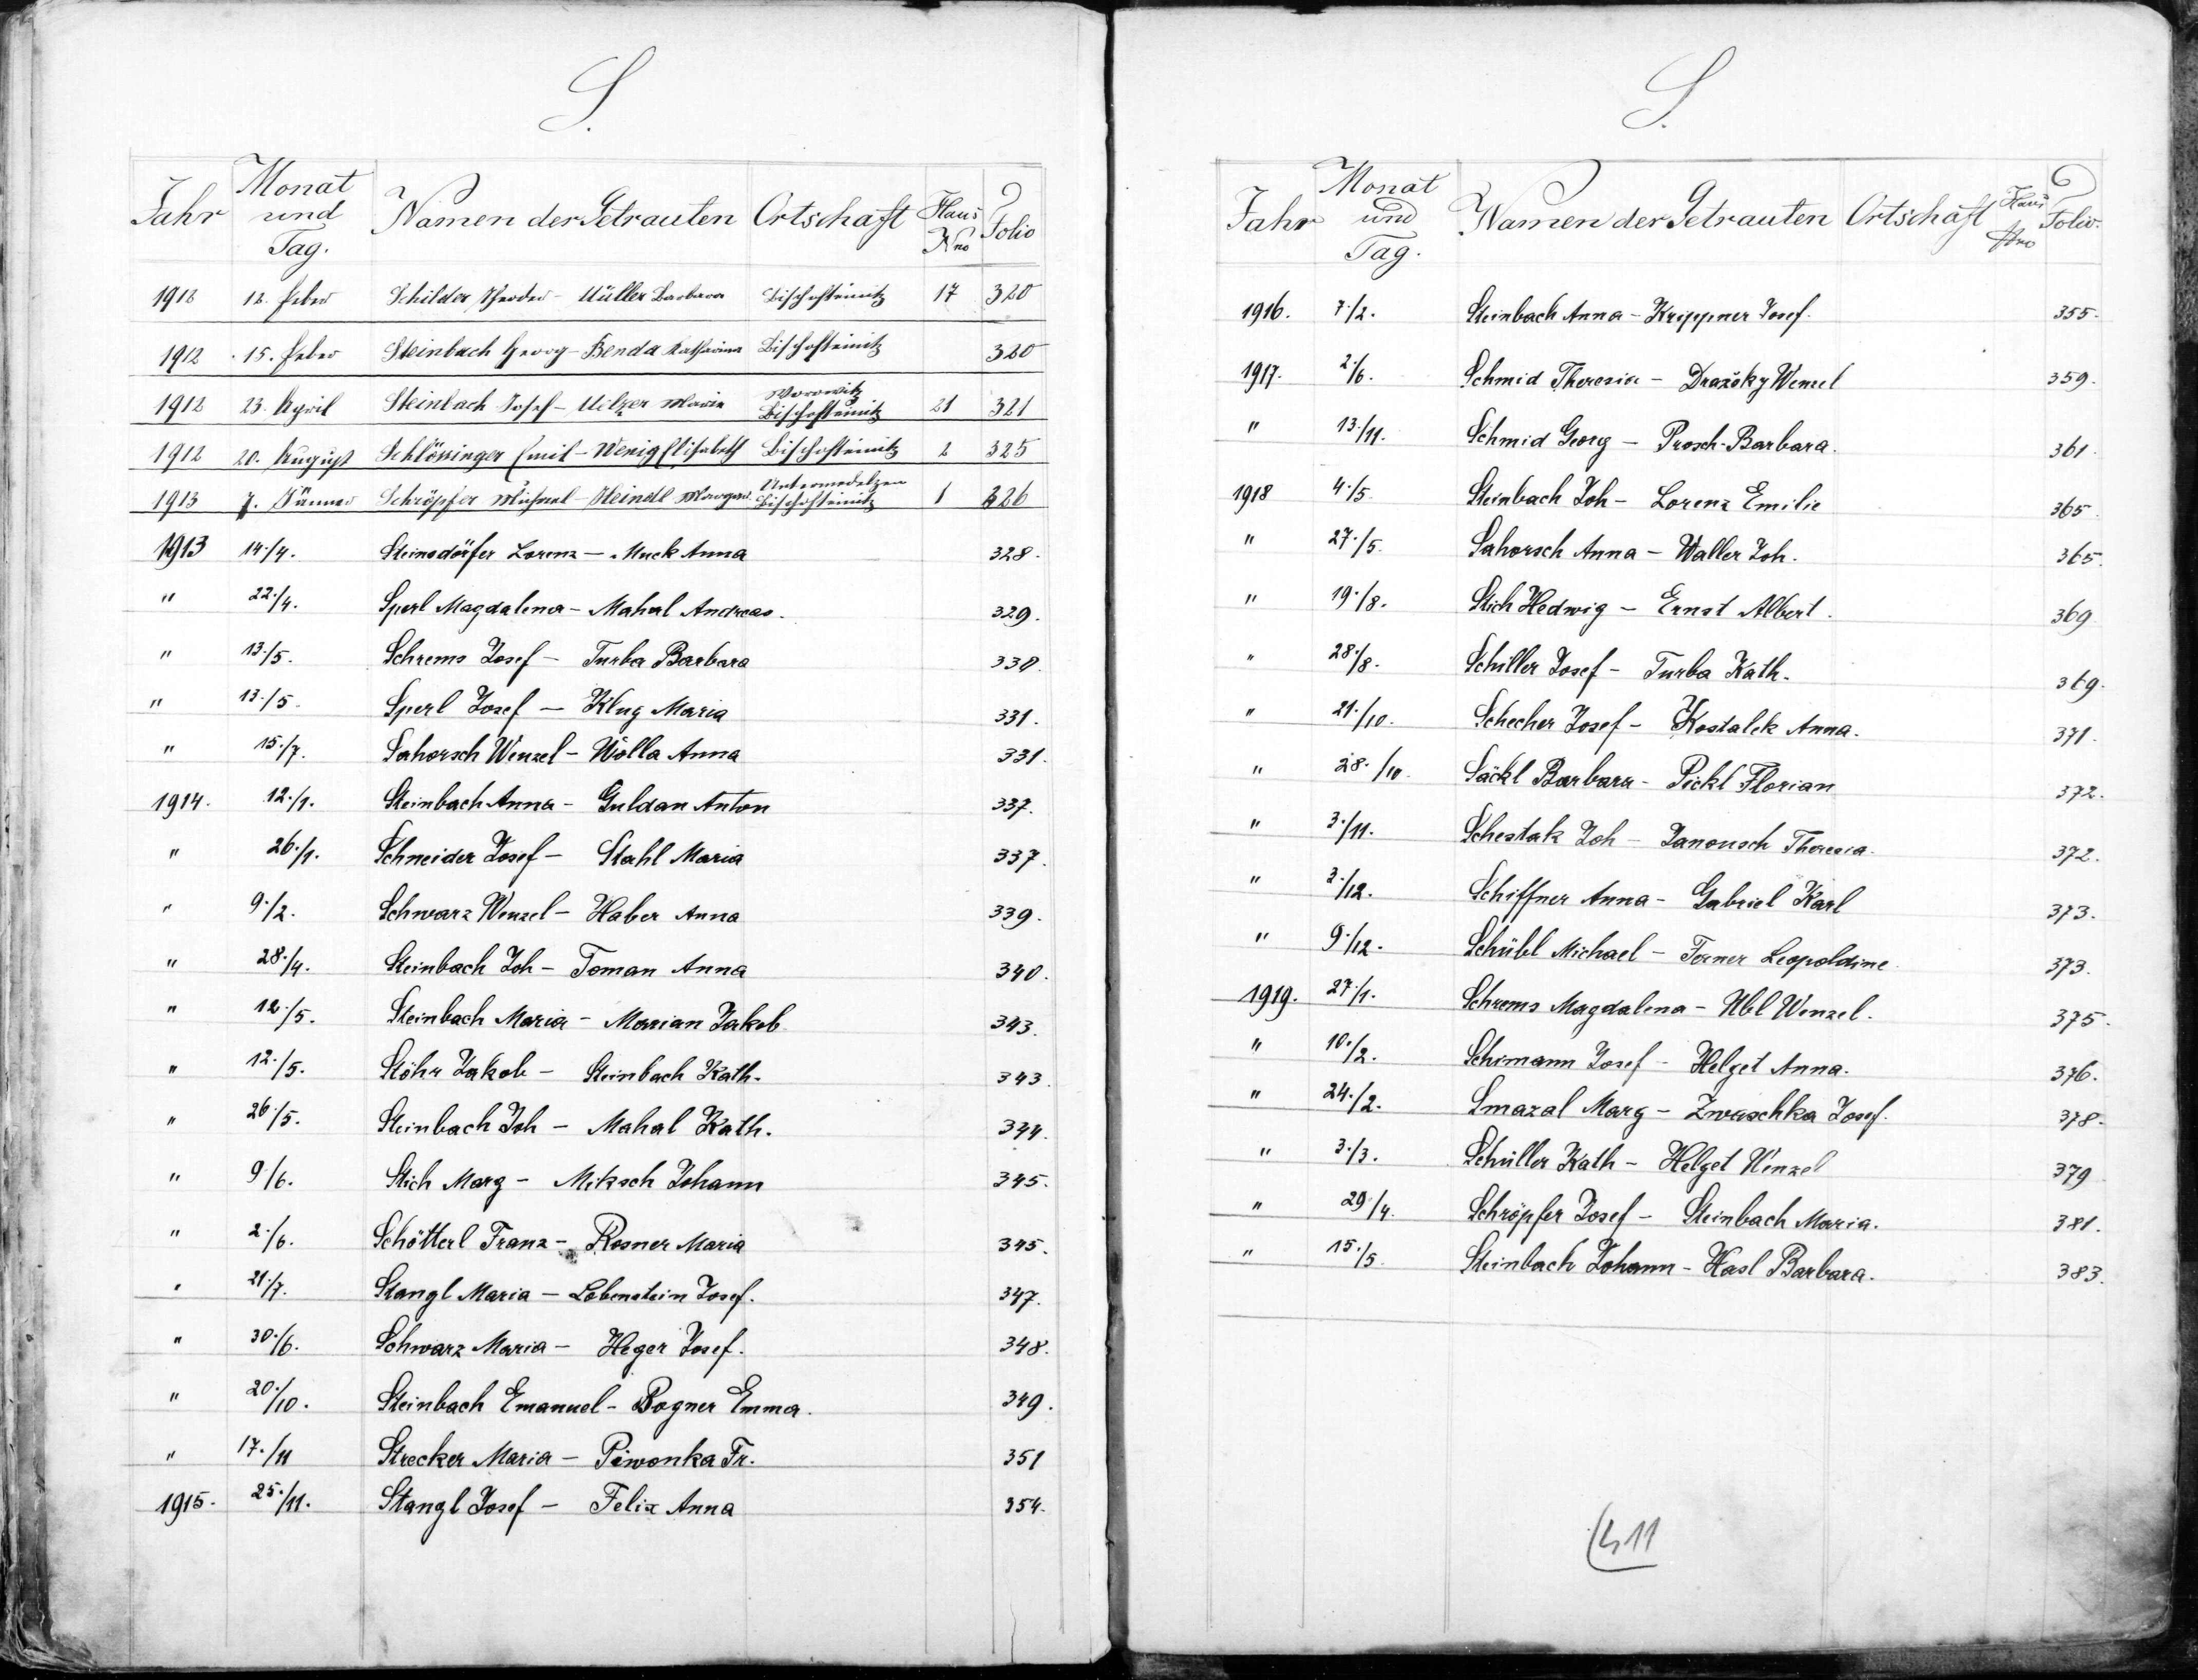 S.
Jahr Monat und Tag. Namen der Getrauten Ortschaft Haus Nro Folio
1912 12. Feber Schilder Theodor - Müller Barbara Bischofteinitz 17 320
1912 15. Feber Steinbach Georg - Benda Katharina Bischofteinitz 320
1912 23. April Steinbach Josef - Melzer Maria Worowitz Bischofteinitz 21 321
1912 20. August Schlössinger Emil - Wenig Elisabeth Bischofteinitz 2 325
1913 7. Jänner Schröpfer Michael - Heindl Margar. Untermedelzen Bischofteinitz 1 326
1913 14./4. Steinsdörfer Lorenz - Muck Anna 328.
" 22./4. Sperl Magdalena - Mahal Andreas. 329.
" 13./5. Schrems Josef - Turba Barbara 330.
" 13./5. Sperl Josef - Klug Maria 331.
" 15./7. Sahorsch Wenzel - Wolla Anna 331.
1914. 12./1. Steinbach Anna - Guldan Anton 337.
" 26./1. Schneider Josef - Stahl Maria 337.
" 9./2. Schwarz Wenzel - Haber Anna 339.
" 28./4. Steinbach Joh - Toman Anna 340.
" 12./5. Steinbach Maria - Marian Jakob 343.
" 12./5. Stöhr Jakob - Steinbach Kath. 343.
" 26./5. Steinbach Joh - Mahal Kath. 344.
" 9./6. Stich Marg - Miksch Johann 345.
" 2./6. Schötterl Franz - Rosner Maria 345.
" 21./7. Stangl Maria - Lobenstein Josef. 347.
" 30./6. Schwarz Maria - Heger Josef. 348.
" 20./10. Steinbach Emanuel - Bogner Emma. 349.
" 17./11 Strecker Maria - Piwonka Fr. 351
1915. 25./11. Stangl Josef - Felix Anna 354.
S.
Jahr Monat und Tag. Namen der Getrauten Ortschaft Haus Nro Folio.
1916. 7./2. Steinbach Anna - Krippner Josef. 355.
1917. 2./6. Schmid Theresia - Dražsky Wenzel 359.
" 13./11. Schmid Georg - Prosch Barbara. 361.
1918 4./5. Steinbach Joh - Lorenz Emilie 365.
" 27./5. Sahorsch Anna - Waller Joh. 365.
" 19./8. Stich Hedwig - Ernst Albert. 369
" 28./8. Schiller Josef - Turba Kath. 369.
" 21./10. Schecher Josef - Kostalek Anna. 371.
" 28./10. Säckl Barbara - Pickl Florian 372.
" 3./11. Schestak Joh - Janousch Theresia. 372.
" 3./12. Schiffner Anna - Gabriel Karl 373.
" 9./12. Schübl Michael - Forner Leopoldine. 373.
1919. 27./1. Schrems Magdalena - Ubl Wenzel. 375.
" 10./2. Schimann Josef - Helget Anna. 376.
" 24./2. Smazal Marg - Zwaschka Josef. 378.
" 3./3. Schüller Kath - Helget Wenzel 379
" 29./4. Schröpfer Josef - Steinbach Maria. 381.
" 15./5. Steinbach Johann - Hasl Barbara. 383.